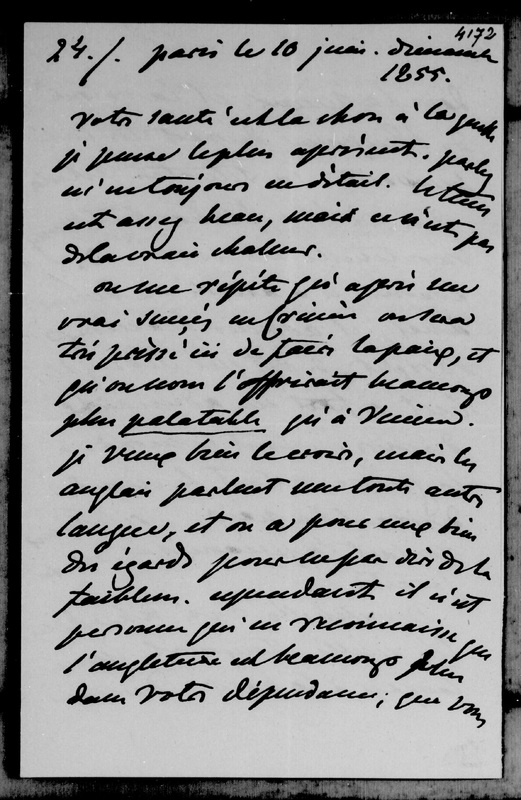 4172
24./. paris le 10 juin. dimanche
1855.
votre santé est la chose à laquelle
je pense le plus à présent. parlez
m'en toujours en détail. le tems
est assez beau, mais ce n'est pas
de la vraie chaleur.
on me répète qu'après un
vrai succès en Crimée on sera
très pressé ici de faire la paix, et
qu'on nous l'offrirait beaucoup
plus palatable qu'à Vienne.
je veux bien le croire, mais les
anglais parlent une toute autre
langue, et on a pour eux bien
des égards pour ne pas dire de la
faiblesse. cependant il n'est
personne qui ne reconnaisse que
l'angleterre est beaucoup plus
dans votre dépendance; que vous